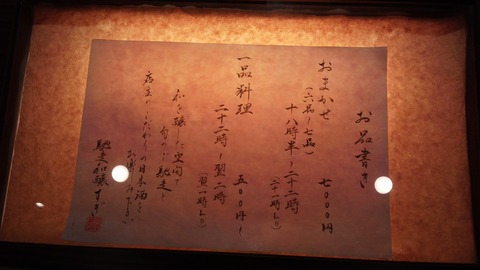 お品書き
おまかせ 七000円
(六品〜七品)
十八時半〜二十二時
(二十一時L.O)
一品料理 五00円〜
二十二時〜翌二時
(翌一時L.O)
和を醸した空間で
旬のご馳走と
店主のこだわりの日本酒を
お楽しみ下さい
馳走和醸すぎ